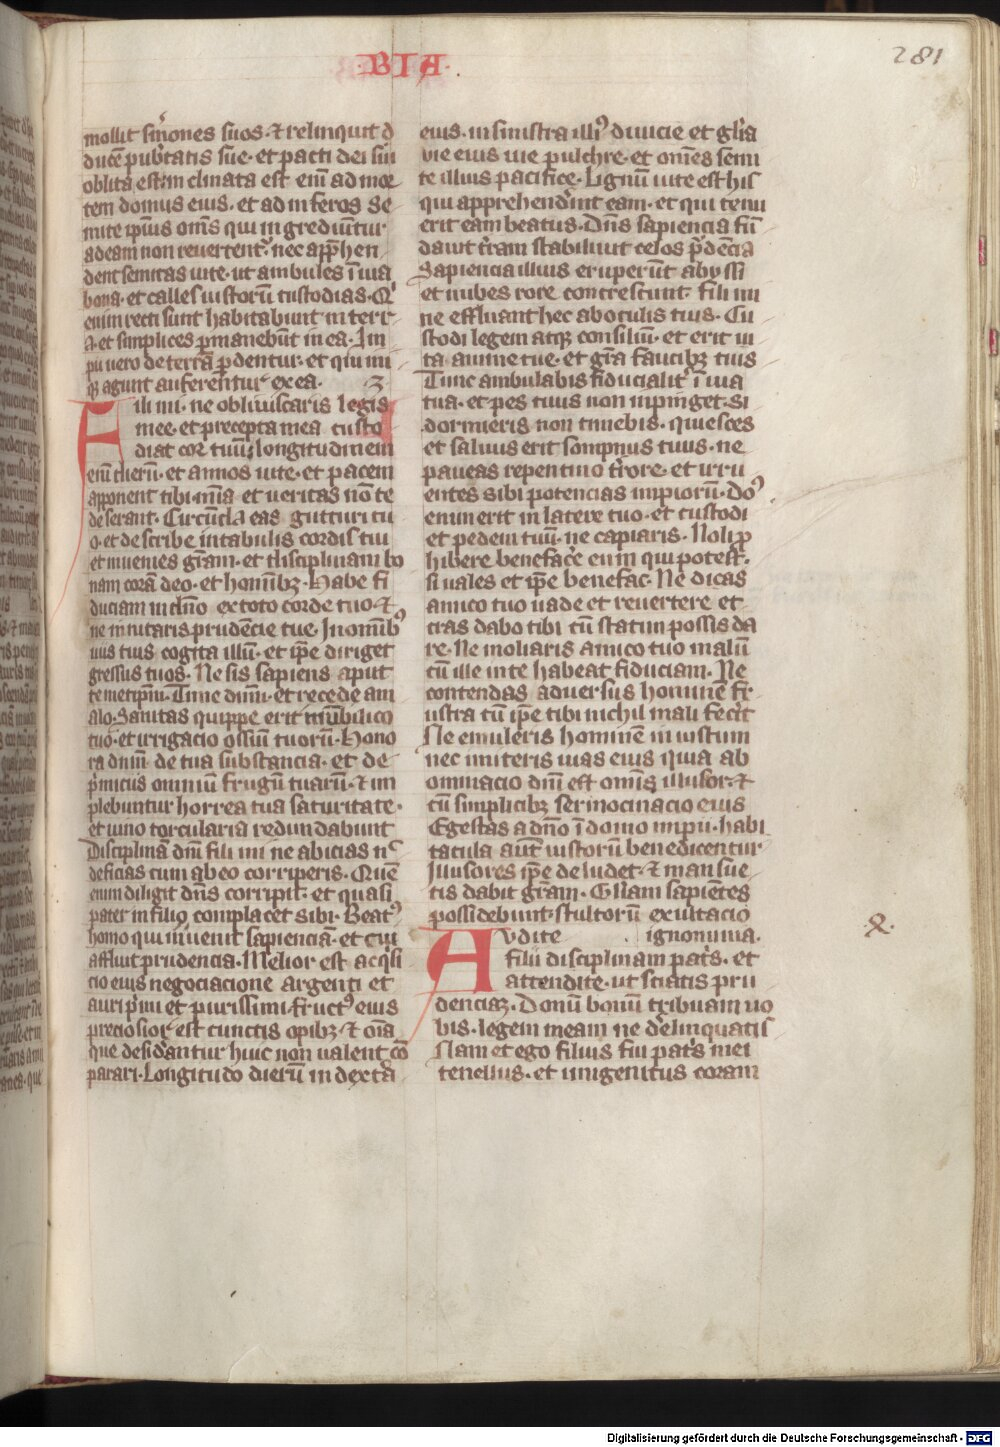 ·BIA·
281
mollit s̾mones suos · ⁊ relinquit d
ducē pub̾tatis sue · et pacti dei sui
oblita est · in clinata est em̄ ad mor
tem domus eius · et ad inferos se
mite ip̄ius om̄s qui in grediūtur
ad eam non revertent᷑ · nec app̄hen
dent semitas uite · ut ambules ī uia
bona · et calles iustorū custodias · Qi
enim recti sunt habitabunt in terr
a · et simplices p̱manebūt in ea · Im
pii uero de terra p̱dentur · et qui ini
q̱ agunt auferentur ex ea · 3
Fili mi · ne obliuiscaris legis
mee · et precepta mea custo
diat cor tuū · longitudinem
enī dierū · et annos uite · et pacem
apponent tibi · mīa et ueritas nō te
deserant · Circūda eas gutturi tu
o · et describe in tabulis cordis tui
et inuenies grām · et disciplinam bo
nam corā deo · et hominibꝫ · Habe fi
duciam in dn̄o ex toto corde tuo · ⁊
ne innitaris prudēcie tue · In omībꝰ
uiis tuis cogita illū · et ip̄e diriget
gressus tuos · Ne sis sapiens aput
temetip̄m · Time dnm̄ · et recede a m
alo · Sanitas quippe erit in ūbilico
tuo · et irrigacio ossiū tuorū · Hono
ra dnm̄ de tua substancia · et de
p̱miciis omniū frugū tuarū · ⁊ im
plebuntur horrea tua saturitate ·
et uino torcularia redundabunt
Disciplinā dnī fili mi ne abicias nᶜ
deficias cum ab eo corriperis · Quē
enim diligit dn̄s corripit · et quasi
pater in filio complacet sibi · Beatꝰ
homo qui inuenit sapienciā · et cui
affluit prudencia · Melior est acq̱si
cio eius negociacione argenti et
auri p̱mi et purissimi · fructꝰ eius
preciosior est cunctis opibꝫ · ⁊ om̄ia
que desid̾antur huic non ualent cō
parari · Longitudo dierū in dextā
eius · in sinistra illiꝰ diuicie et glīa
vie eius uie pulchre · et om̄es semi
te illius pacifice · Lignū uite est his
qui apprehend̾int eam · et qui tenu
erit eam beatus · Dn̄s sapiencia fū
dauit t̾ram stabiliuit celos p̱dēcia
Sapiencia illius eruperūt abyssi
et nubes rore concrescunt · fili mi
ne effluant hec ab oculis tuis · Cu
stodi legem atqꝫ consiliū · et erit ui
ta anime tue · et grā faucibꝫ tuis
Tunc ambulabis fiducialit̾ ī uia
tua · et pes tuus non inpinget · Si
dormieris non timebis · quiesces
et saluus erit sompnus tuus · ne
paueas repentino t̾rore · et irru
entes sibi potencias impiorū · Doꝰ
enim erit in latere tuo · et custodi
et pedem tuū · ne capiaris · Noli p̱
hibere benefac̾e eum qui potest ·
si uales et ip̄e benefac · Ne dicas
amico tuo uade et reuertere et
cras dabo tibi cū statim possis da
re · Ne moliaris amico tuo malū
cū ille in te habeat fiduciam · Ne
contendas aduersus hominē fr
ustra cū ip̄e tibi nichil mali fec̾it
Ne emuleris hominē iniustum
nec imiteris uias eius quia ab
ominacio dnī est omīs illusor · ⁊
cū simplicibꝫ sermocinacio eius
Egestas a dn̄o ī domo impii · habi
tacula aūt iustorū benedicentur
Illusores ip̄e deludet · ⁊ mansue
tis dabit grām · Gl̄iam sapiētes
possidebunt · stultorū exultacio
Audite ignominia ·
filii disciplinam pat̾s · et
attendite · ut sciatis pru
denciaꝫ · Donū bonū tribuam uo
bis · legem meam ne d̾elinquatis
Nam et ego filius fui pat̾s mei
tenellus · et unigenitus coram
Digitalisierung gefördert durch die Deutsche Forschungsgemeinschaft · DFG